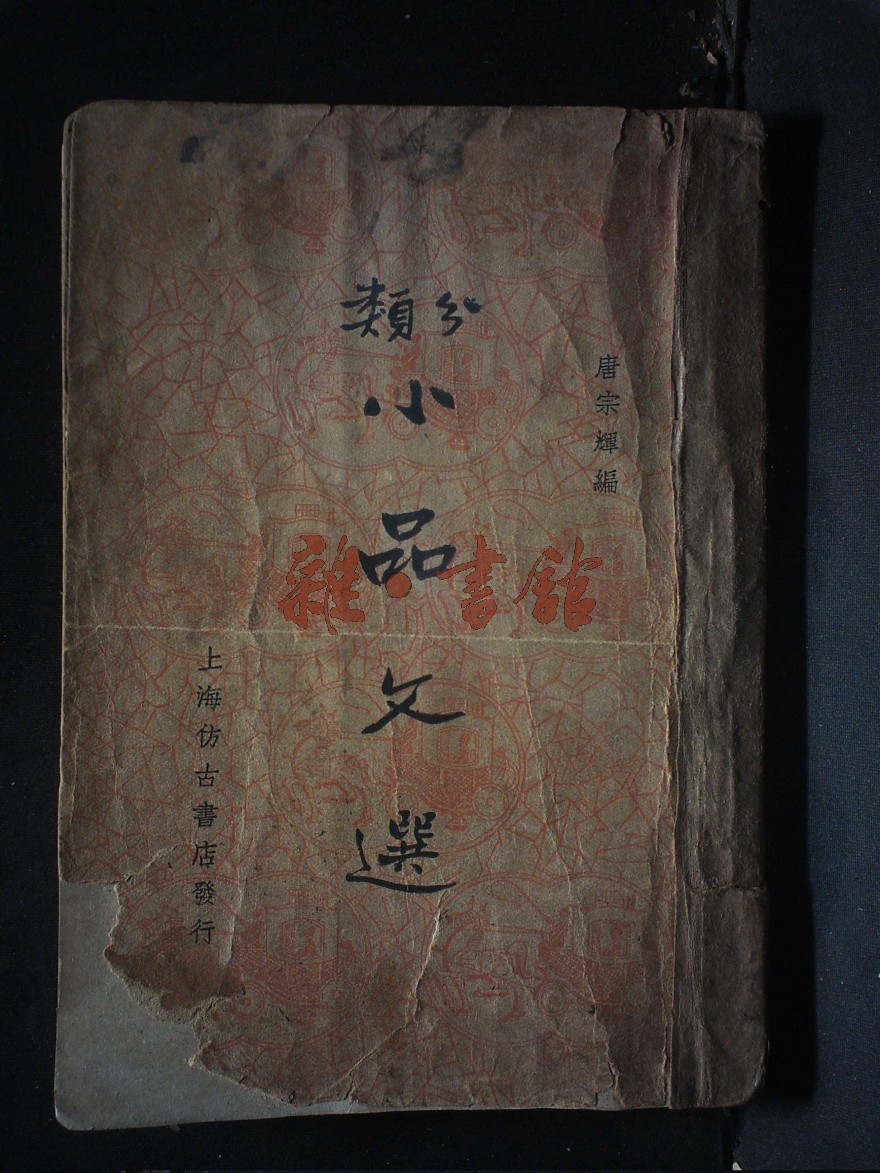 唐宗輝編
分類
小品文選
上海仿古書店發行
雜·書館